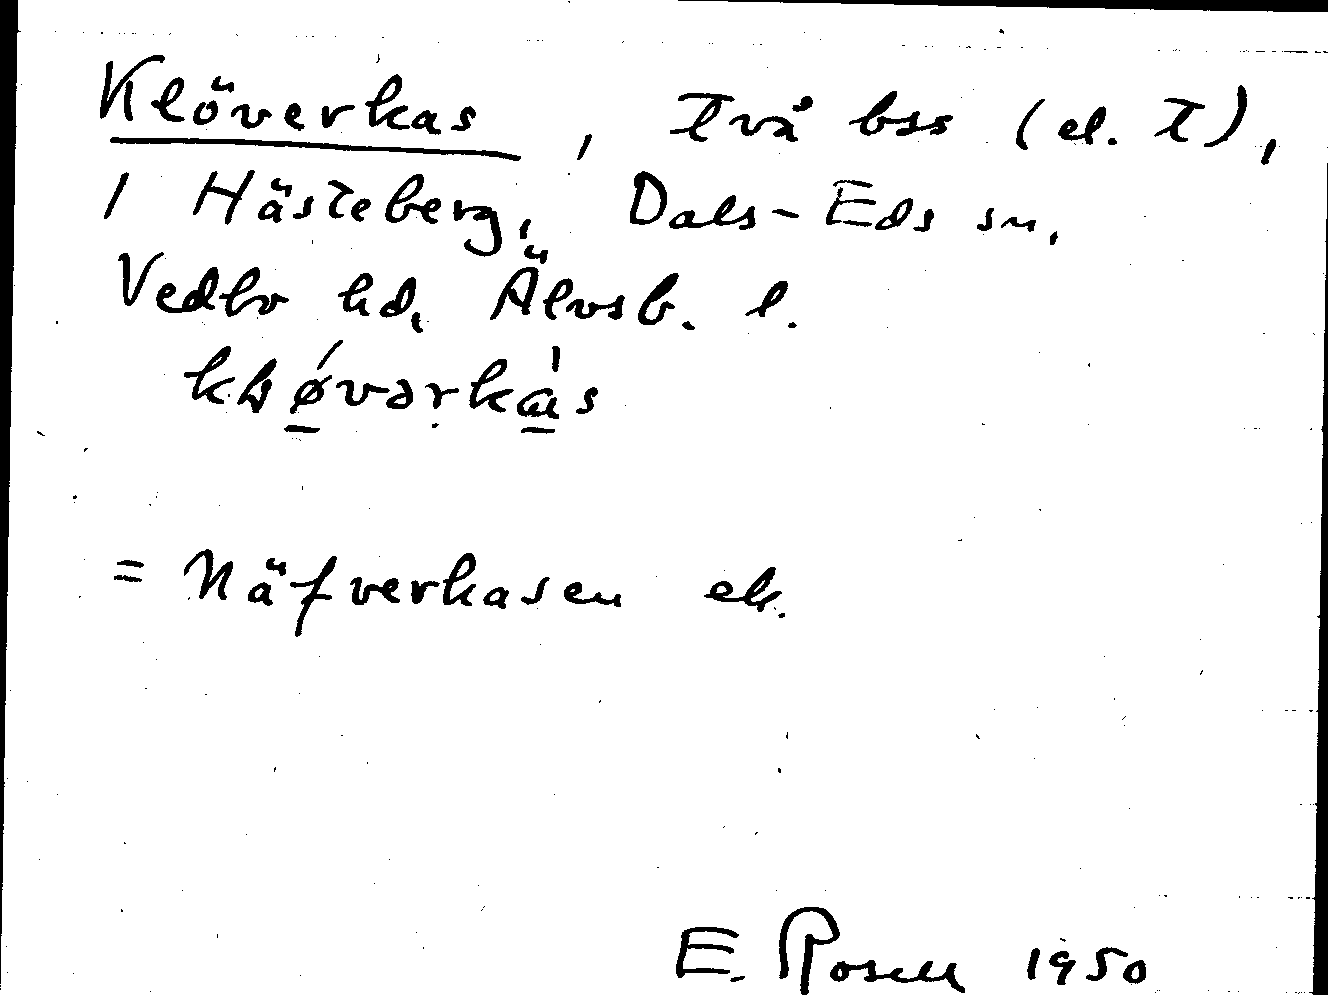 Klöverkas, två bss (el. t),
i Hästeberg, Dals-Eds sn,
Vedbo hd, Älvsb. l.
= Näfverkasen ek.
E. Rosell 1950